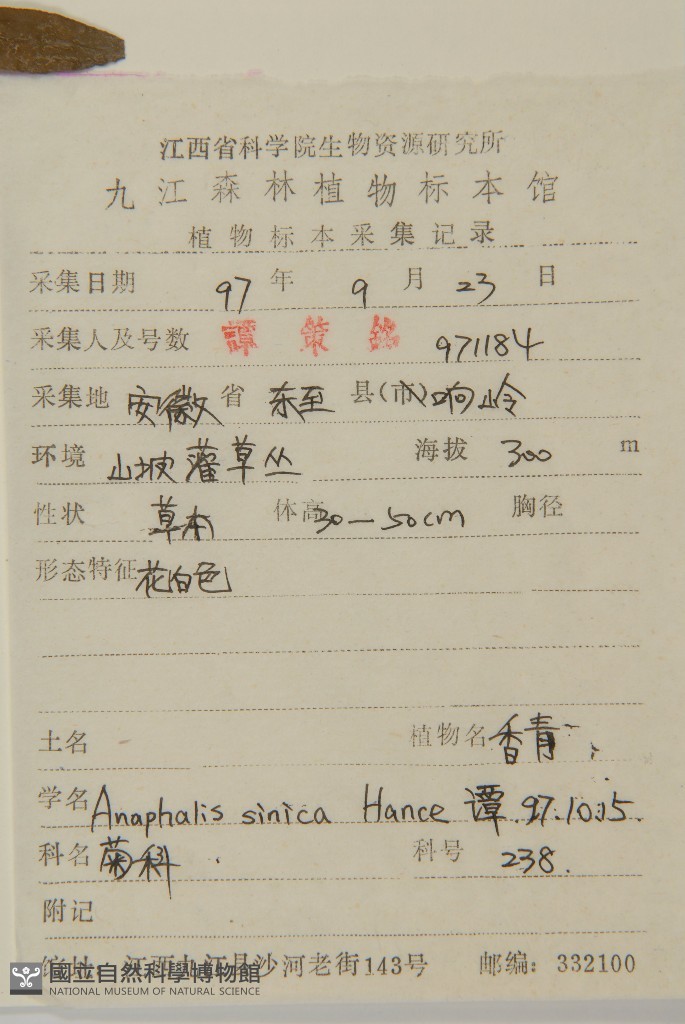 江西省科学院生物资源研究所
九江森林植物标本馆
植物标本采集记录
采集日期 97 年 9 月 23 日
采集人及号数 譚策铭 971184
采集地 安徽 省 东至 县(市) 响岭
环境 山坡灌草丛 海拔 300 m
性状 草本 体高 30—50cm 胸径
形态特征 花白色
土名 植物名 香青
学名 Anaphalis sinica Hance 谭.97.10.15.
科名 菊科 科号 238.
附记
馆址 江西九江县沙河老街143号 邮编: 332100
國立自然科學博物館
NATIONAL MUSEUM OF NATURAL SCIENCE